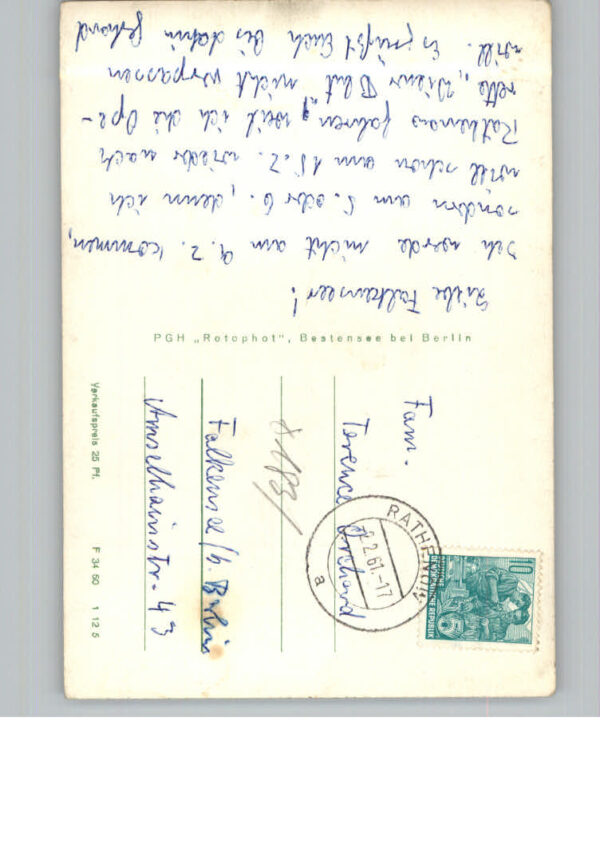 Liebe Falkenseer!
Ich werde nicht am 9.2. kommen,
sondern am 5. oder 6., denn ich
will schon am 15.2. wieder nach
Rathenow fahren, weil ich die Ope-
rette „Wiener Blut" nicht verpassen
will. Es grüßt Euch bis dahin Gerhard
PGH „Rotophot", Bestensee bei Berlin
Fam.
Terence
Falkensee/b. Berlin
Amselhainstr. 43
Verkaufspreis 25 Pf.
F 34 60 1 12 5
RATHENOW
2.2.61.-17
a
10
DEUTSCHE DEMOKRATISCHE REPUBLIK